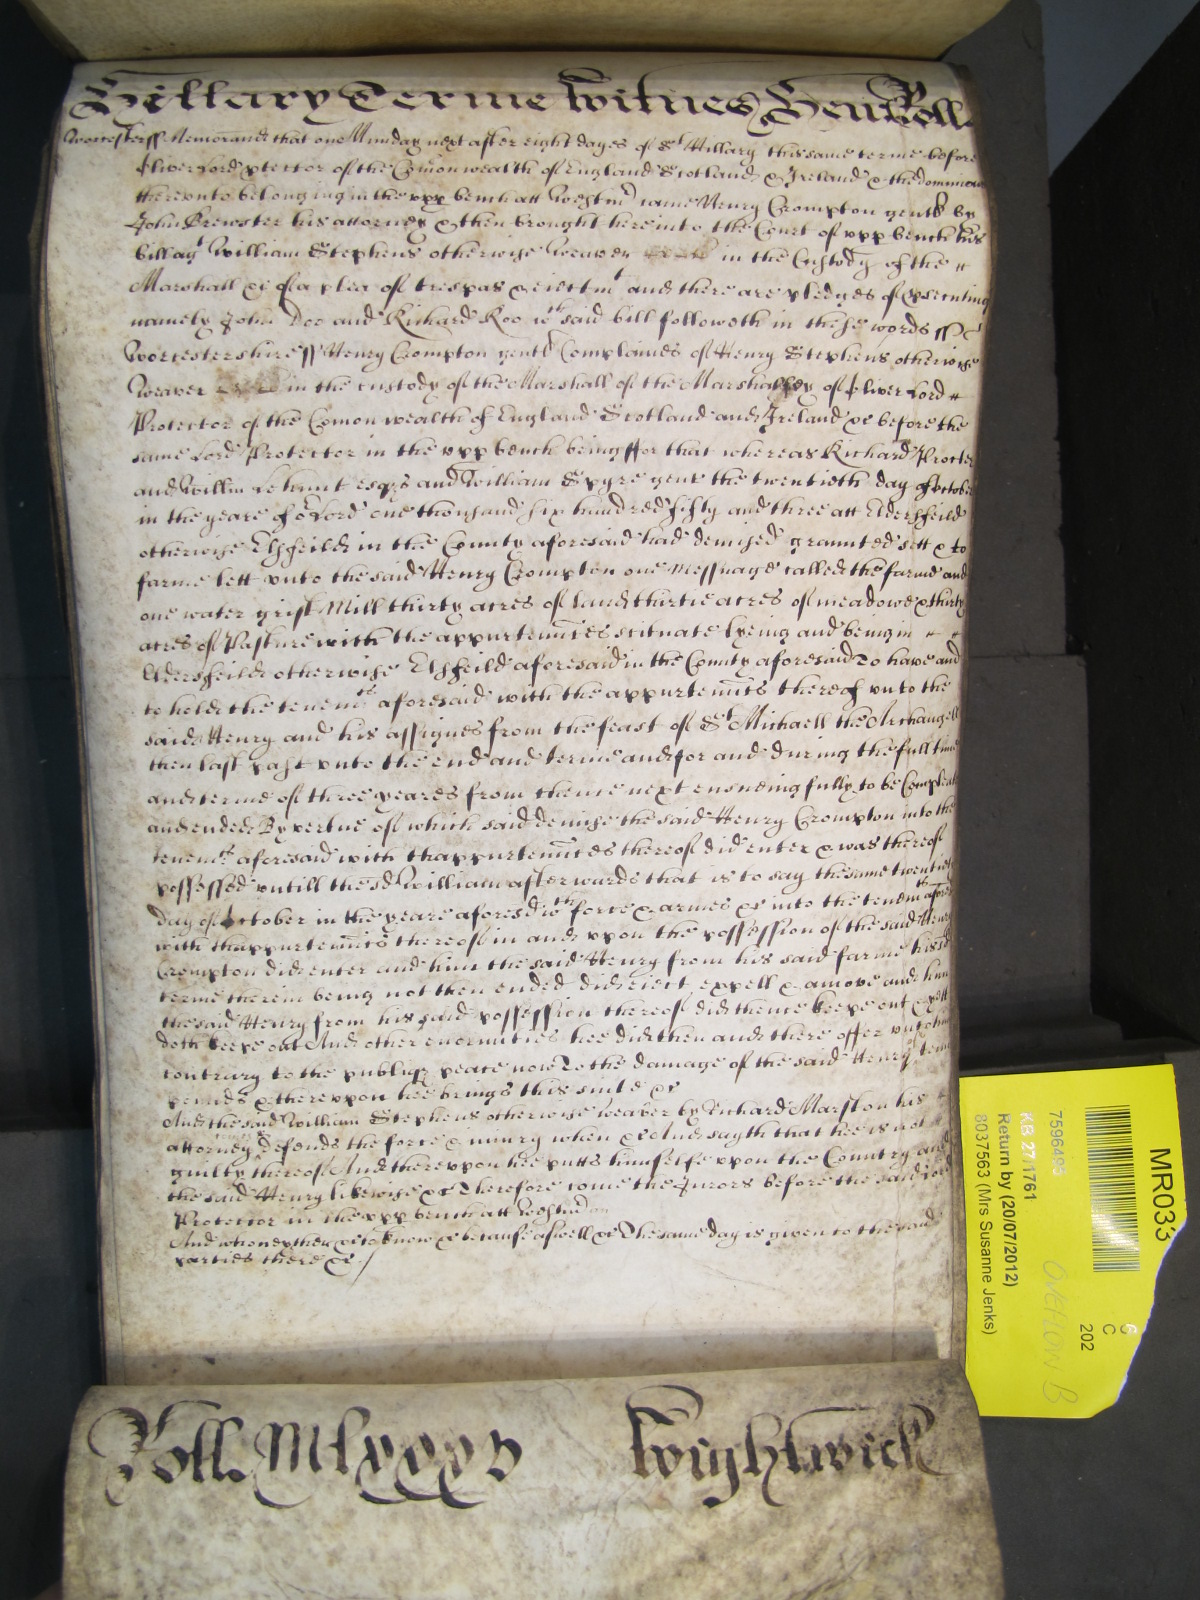 Hillary Terme Witnes Hen Roll
Worcestersh ss Memorand that one Munday next after eight dayes of St Hillary this same terme before
Oliver Lord Protector of the Comon wealth of England Scotland & Ireland & the dominions
thereunto belonging in the upp bench att Westmr came Henry Crompton gentl by
John Brewster his attorney & then brought here into the Court of upp bench his
bill agt William Stephens otherwise Weaver in the Custody of the
Marshall &c of a plea of trespas & eiectmt and there are pledges of prsecuting
namely John Doo and Richard Roo wch said bill followeth in these words ss
Worcestershire ss Henry Crompton gentl Complaines of Henry Stephens otherwise
Weaver in the custody of the Marshall of the Marshalsey of Oliver Lord
Protector of the Comon wealth of England Scotland and Ireland &c before the
same Lord Protector in the upp bench being ffor that whereas Richard Procter
and Willm Lehunt esqrs and William Spyre gent the twentieth day of October
in the yeare of or Lord one thousand six hundred fifty and three att Eldersfeild
otherwise Elsfeild in the County aforesaid had demised graunted sett & to
farme lett unto the said Henry Crompton one Messuage called the farme and
one water grist Mill thirty acres of land thirtie acres of meadowe & thirty
acres of Pasture with the appurtenncs scituate lyeing and being in
Eldersfeild otherwise Elsfeild aforesaid in the County aforesaid To have and
to hold the tenemts aforesaid with the appurtenncs thereof unto the
said Henry and his assignes from the feast of St Michaell the Archangell
then last past unto the end and terme and for and during the full time
and terme of three yeares from thence next ensueing fully to be Compleat
and ended By vertue of which said demise the said Henry Crompton into the
tenemts aforesaid with thappurtenncs thereof did enter & was thereof
possessed untill the sd William afterwards that is to say the same twentieth
day of October in the yeare aforesd wth force & armes &c into the tenemts afores
with thappurtenncs thereof in and upon the possession of the said Henry
Crompton did enter and him the said Henry from his said farme his sd
terme therein being not then ended did eiect expell & amove and him
the said Henry from his said possession thereof did thence keepe out & yett
doth keepe out And other enormities hee did then and there offer unto him
contrary to the publique peace now To the damage of the said Henry tenn
pounds & thereupon hee brings this suite &c
And the said William Stephens otherwise Weaver by Richard Marston his
attorney defends the force & iniury when &c And sayth that hee is not
guilty thereof And thereupon hee putts himselfe upon the Country and
the said Henry likewise &c Therefore come the Jurors before the said Lord
Protector in the upp bench att Westmr on
And who neyther &c to know &c because aswell &c The same day is given to the said
parties there &c
Roll Mlxxxv Wightwick
MR033
7596495
KB 27/1761
Return by (20/07/2012)
8037563 (Mrs Susanne Jenks)
OVERFLOW B
C
202